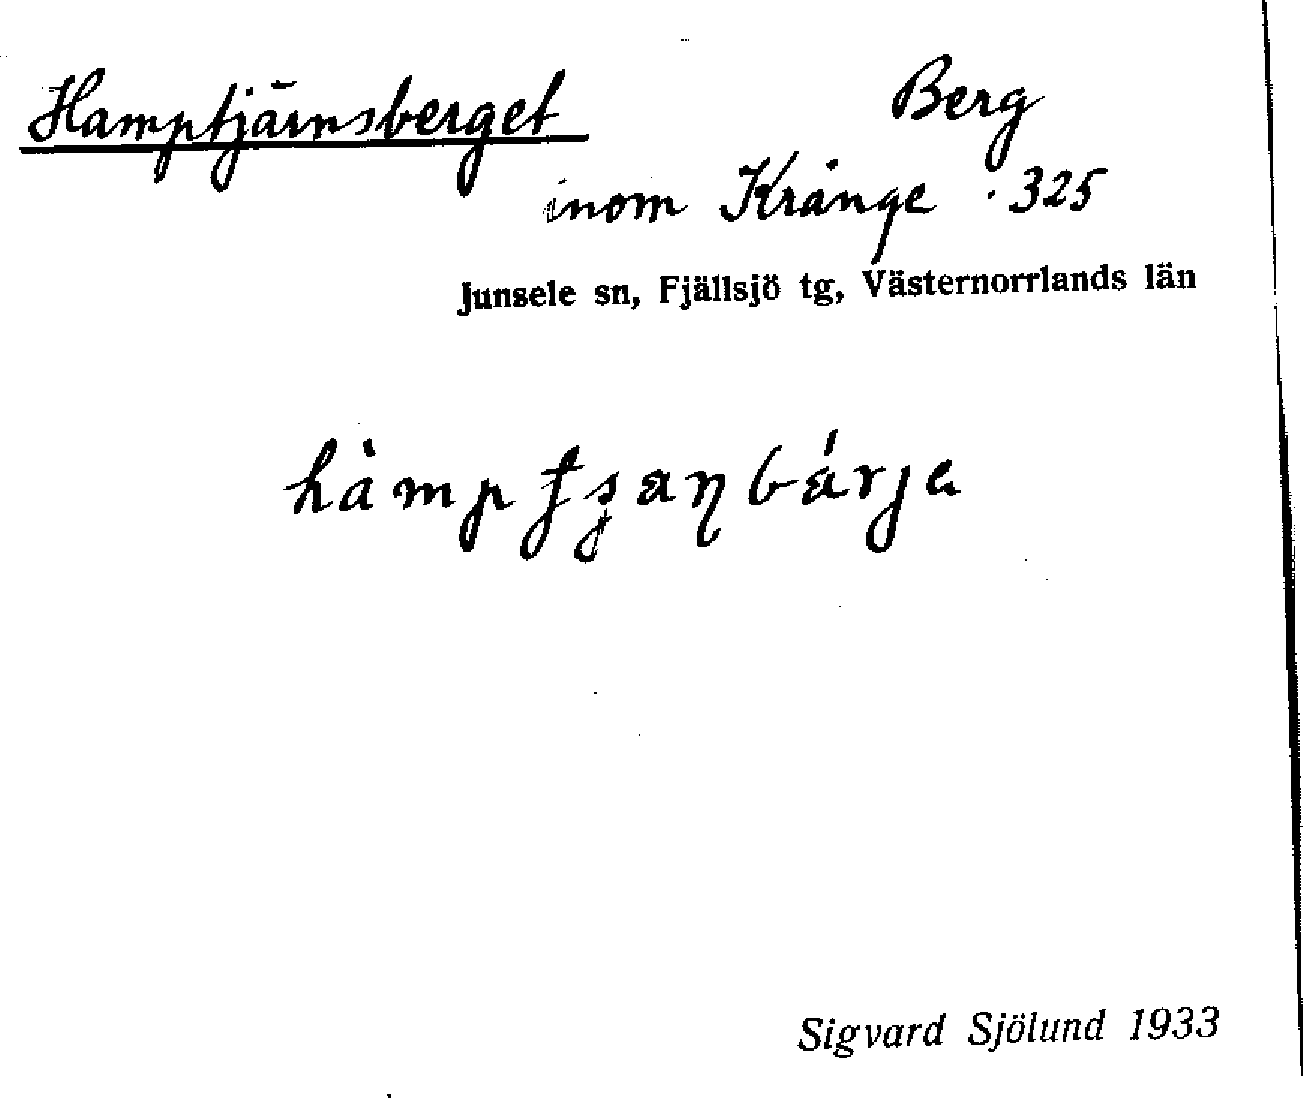 Hamptjärnsberget
Berg
inom Krånge · 325
Junsele sn, Fjällsjö tg, Västernorrlands län
Sigvard Sjölund 1933